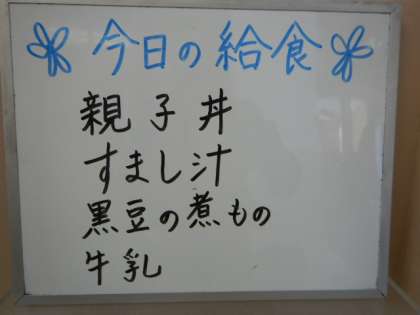 今日の給食
親子丼
すまし汁
黒豆の煮もの
牛乳